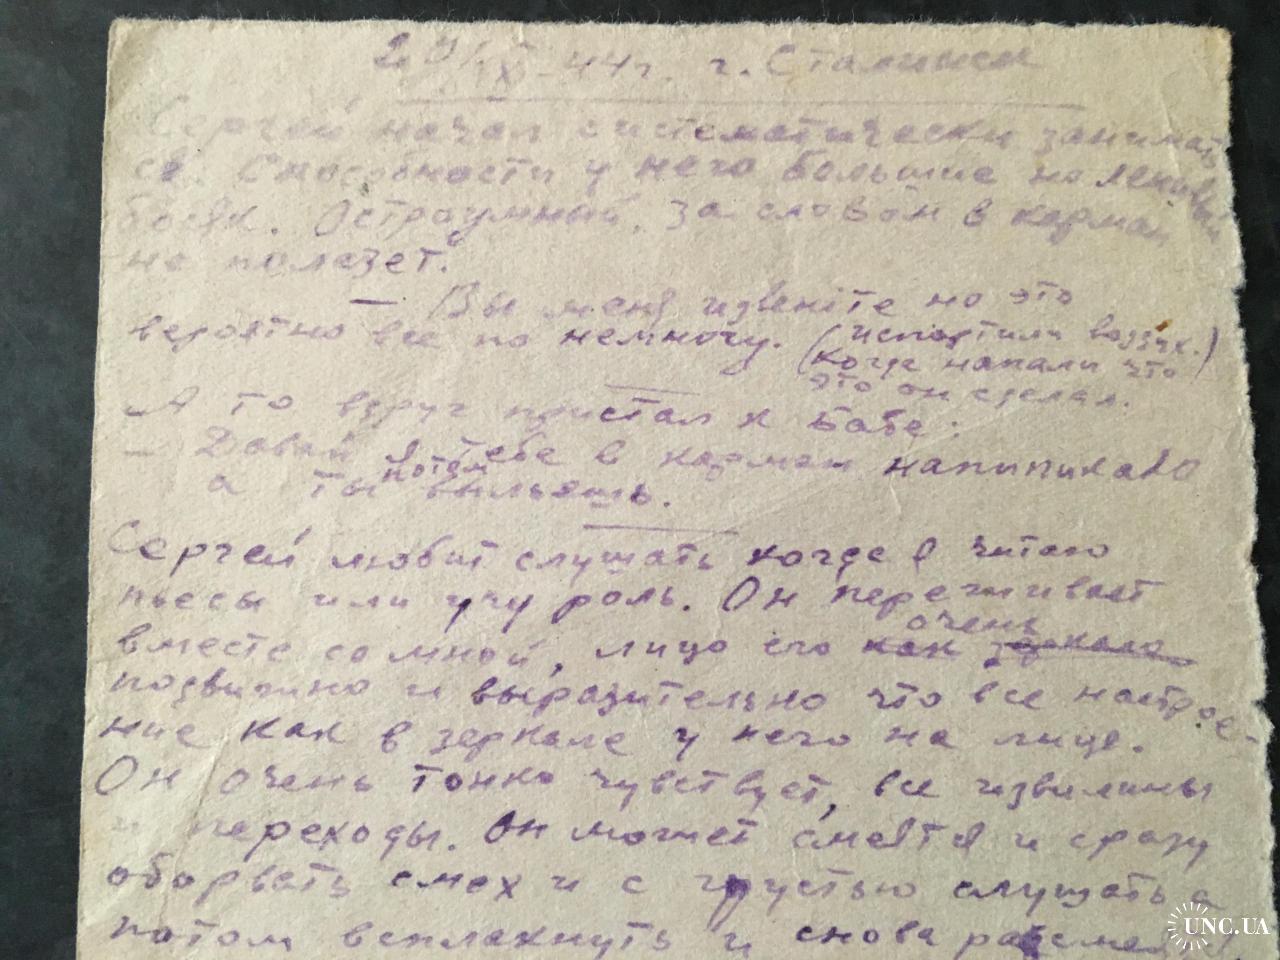 20/IX-44г. г. Сталинск
Сергей начал систематически занимать
ся. Способности у него большие но ленивый
Остроумный, за словом в карман
не полезет.
— Вы меня извените но это
вероятно все по немногу. (испортили воздух.)
(когда напали что
это он сделал.
А то вдруг пристал к бабе:
— Давай я тебе в карман напипикаю
а ты потом выльешь.
Сергей любит слушать когда я читаю
пьесы или учу роль. Он переживает
вместе со мной, лицо его как зеркало очень
подвижно и выразительно что все настрое-
ние как в зеркале у него на лице.
Он очень тонко чувствует, все извилины
и переходы. Он может смеятся и сразу
оборвать смех и с грустью слушать а
потом всплакнуть и снова
UNC.UA